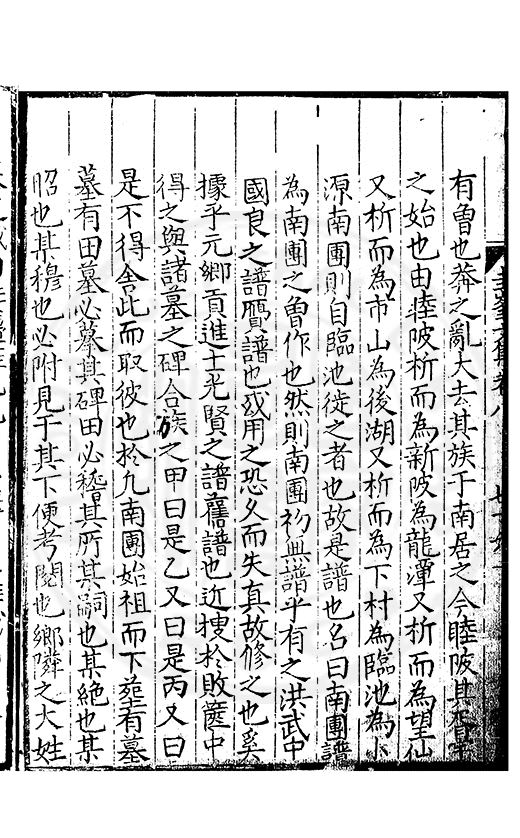 有魯也莽之亂大去其族于南居之今睦陂其胥宇
之始也由睦陂析而為新陂為龍潭又析而為望仙
又析而為市山為後湖又析而為下村為臨池為卜
源南團則自臨池徙之者也故是譜也名曰南團譜
為南團之魯作也然則南團初無譜乎有之洪武中
國良之譜贋譜也或用之恐久而失真故修之也奚
據乎元鄉貢進士光賢之譜舊譜也近搜於敗篋中
得之與諸墓之碑合族之甲曰是乙又曰是丙又曰
是不得舍此而取彼也於凢南團始祖而下葬有墓
墓有田墓必摹其碑田必稽其所其嗣也某絶也某
昭也某穆也必附見于其下便考閱也鄉隣之大姓